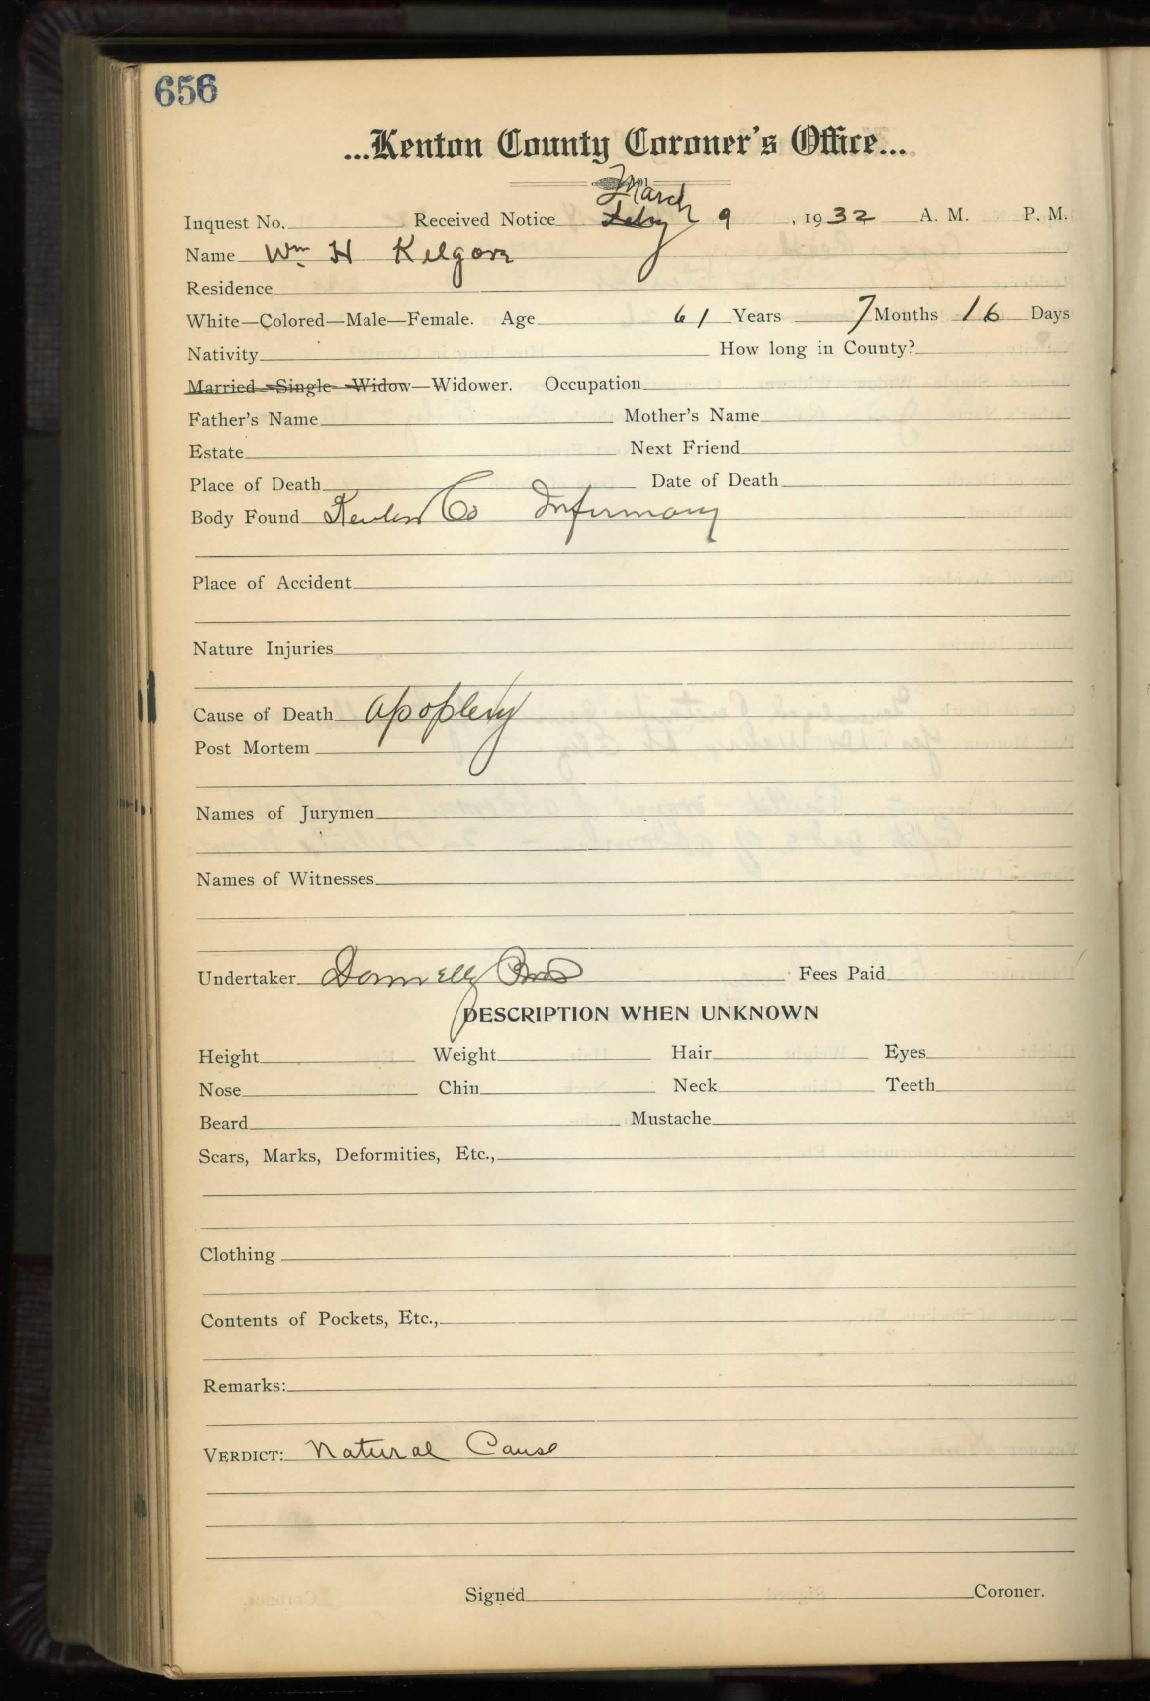 656
...Kenton County Coroner's Office...
March
Inquest No. Received Notice Feby 9, 1932 A. M. P. M.
Name Wm H Kilgore
Residence
White—Colored—Male—Female. Age 61 Years 7 Months 16 Days
Nativity How long in County?
Married—Single—Widow—Widower. Occupation
Father's Name Mother's Name
Estate Next Friend
Place of Death Date of Death
Body Found Kenton Co Infirmary
Place of Accident
Nature Injuries
Cause of Death apoplexy
Post Mortem
Names of Jurymen
Names of Witnesses
Undertaker Donnelly Bros Fees Paid
DESCRIPTION WHEN UNKNOWN
Height Weight Hair Eyes
Nose Chin Neck Teeth
Beard Mustache
Scars, Marks, Deformities, Etc.,
Clothing
Contents of Pockets, Etc.,
Remarks:
VERDICT: Natural Cause
Signed Coroner.